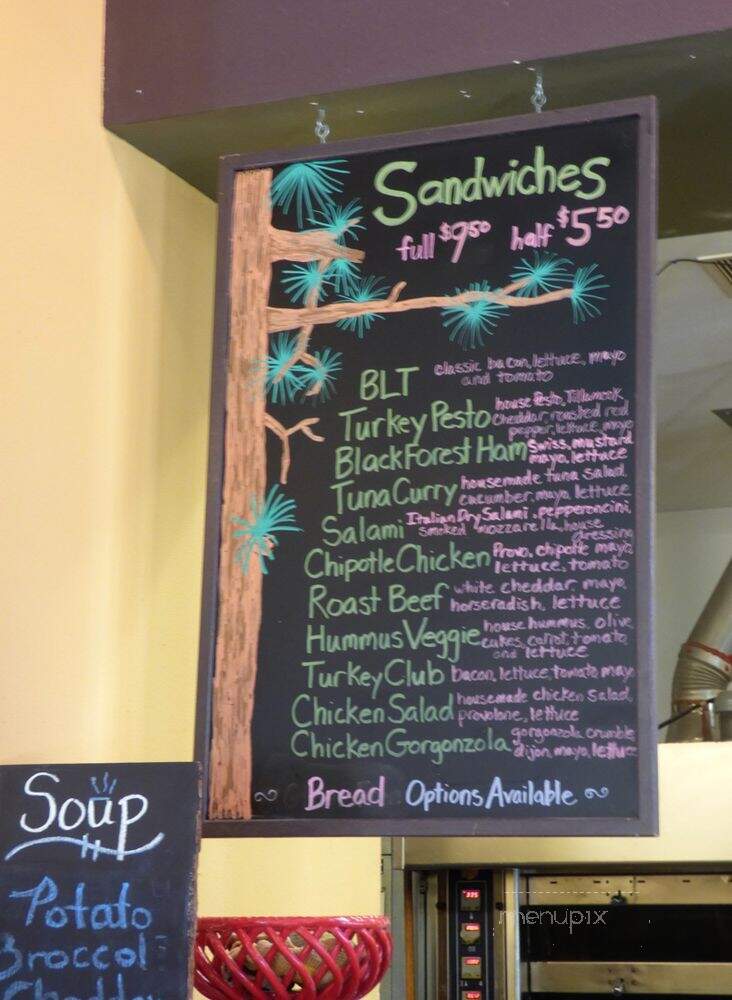 Sandwiches
full $9.50 half $5.50
BLT classic bacon, lettuce, mayo
and tomato
Turkey Pesto house Pesto, Tillamook
Cheddar, roasted red
pepper, lettuce, mayo
Black Forest Ham Swiss, mustard
mayo, lettuce
Tuna Curry housemade tuna salad,
cucumber, mayo, lettuce
Salami Italian Dry Salami, pepperoncini,
smoked mozzarella, house
dressing
Chipotle Chicken Provo, chipotle mayo
lettuce, tomato
Roast Beef white cheddar, mayo,
horseradish, lettuce
Hummus Veggie house hummus, olive
cukes, carrot, tomato
and lettuce
Turkey Club bacon, lettuce, tomato mayo
Chicken Salad housemade chicken salad,
provolone, lettuce
Chicken Gorgonzola gorgonzola crumble
dijon, mayo, lettuce
Bread Options Available
Soup
Potato
Broccoli
Cheddar
menupix